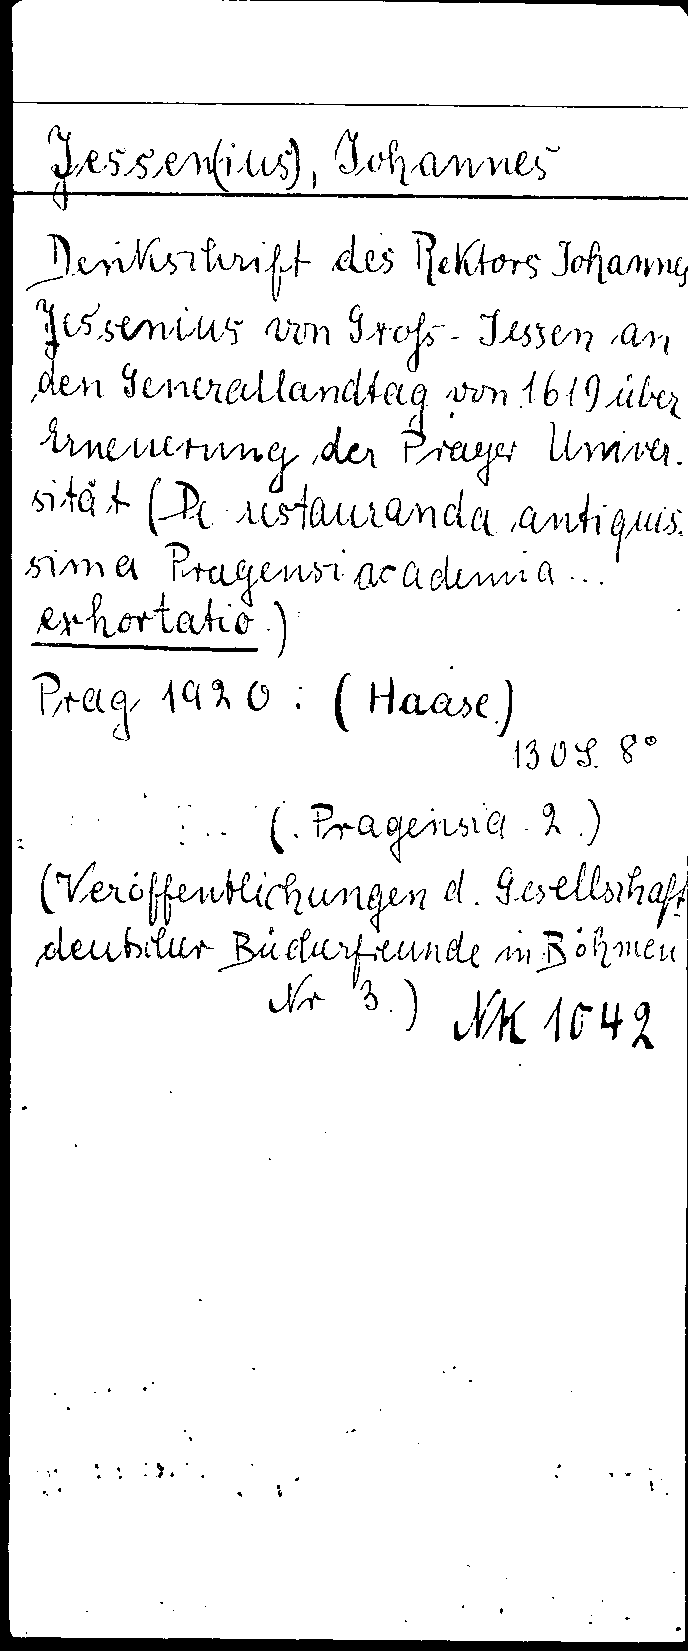 Jessen(ius), Johannes
Denkschrift des Rektors Johannes
Jessenius von Gross-Jessen an
den Generallandtag von 1619 über
Erneuerung der Prager Univer-
sität (De restauranda antiquis-
sima Pragensi academia...
exhortatio.)
Prag 1920: (Haase.)
130 S. 8°
(Pragensia 2.)
(Veröffentlichungen d. Gesellschaft
deutscher Bücherfreunde in Böhmen
Nr 3.) NK 1042